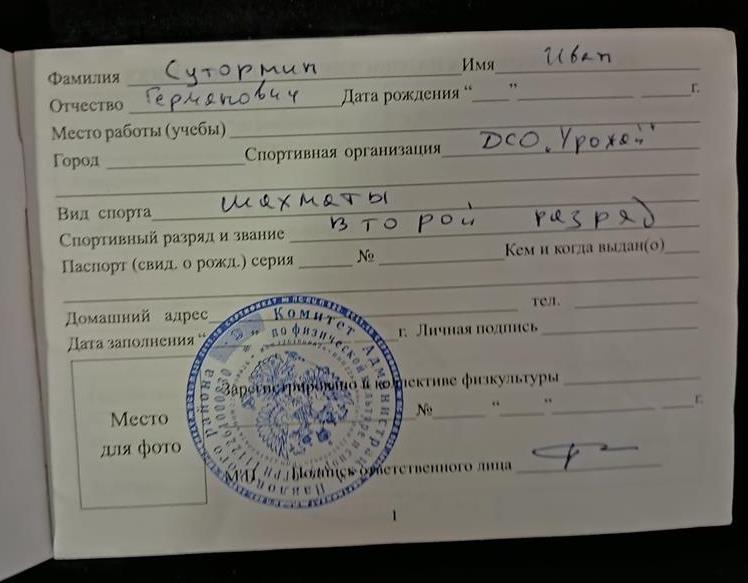 Фамилия Сутормин Имя Иван
Отчество Германович Дата рождения “____”____________ ____г.
Место работы (учебы)
Город ____________ Спортивная организация ДСО „Урожай”
Вид спорта шахматы
Спортивный разряд и звание второй разряд
Паспорт (свид. о рожд.) серия ______ № ____________ Кем и когда выдан(о)____
Домашний адрес ____________ тел. ____________
Дата заполнения “ г. Личная подпись ____________
Комитет Администрации
по физической культуре и спорту
района
Место
для фото
Зарегистрировано в коллективе физкультуры ____________
№ ______ “____“____________ ____г.
М.П. Подпись ответственного лица
1